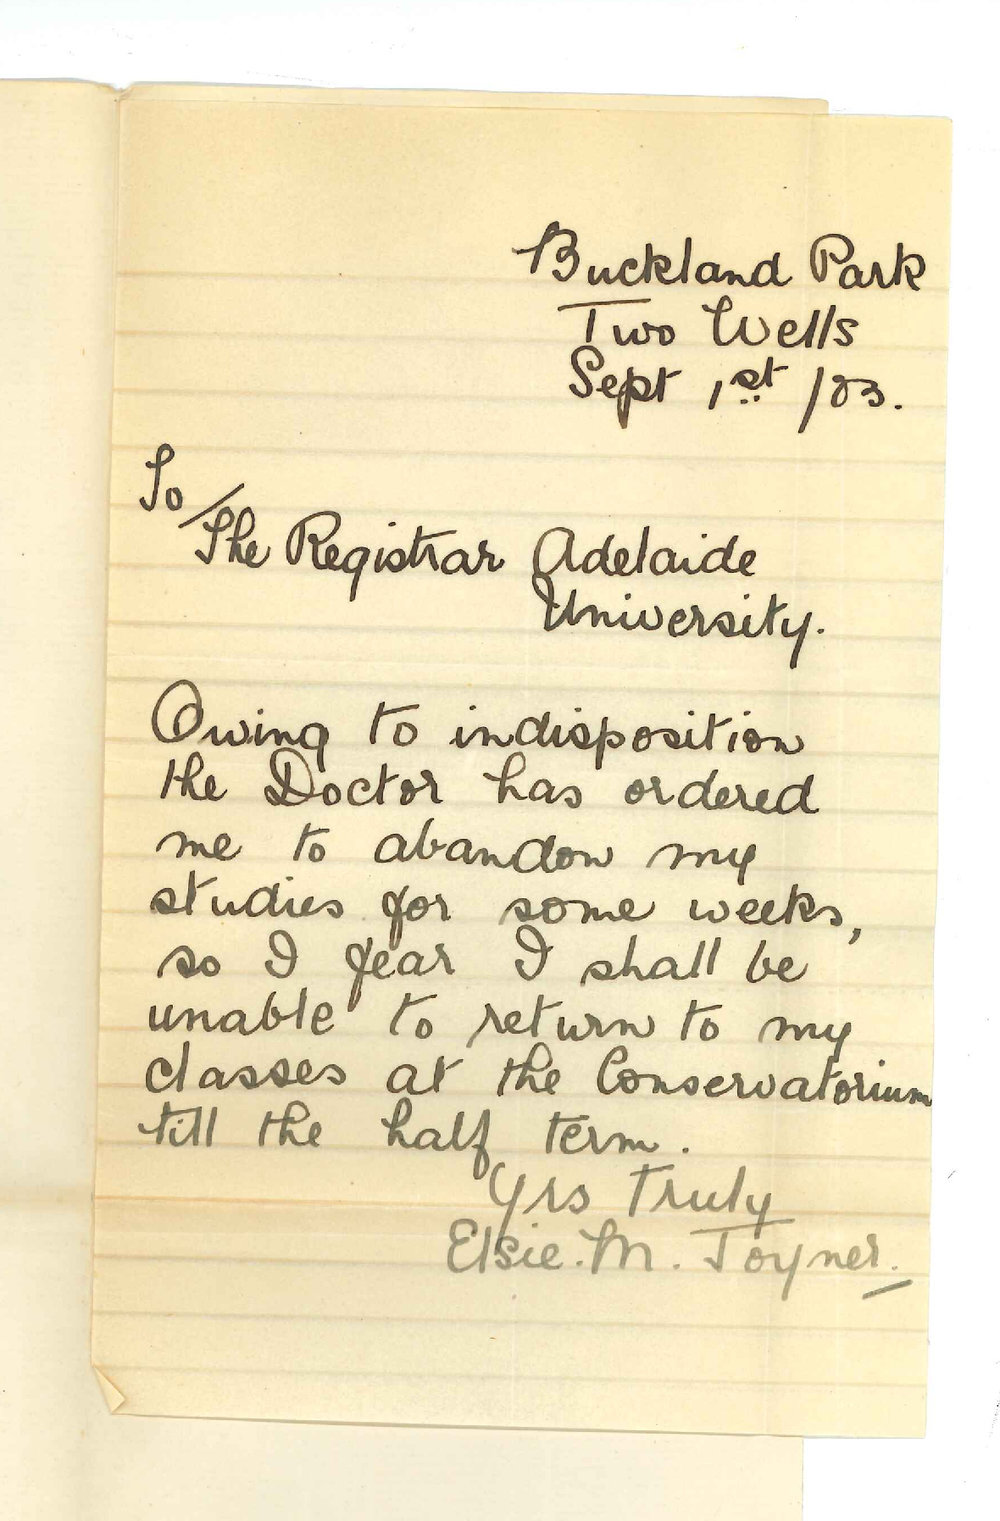 Buckland Park
Two Wells
Sept 1st /03.
To
The Registrar Adelaide
University.
Owing to indisposition
the Doctor has ordered
me to abandon my
studies for some weeks,
so I fear I shall be
unable to return to my
classes at the Conservatorium
till the half term.
Yrs Truly
Elsie. M. Joyner.